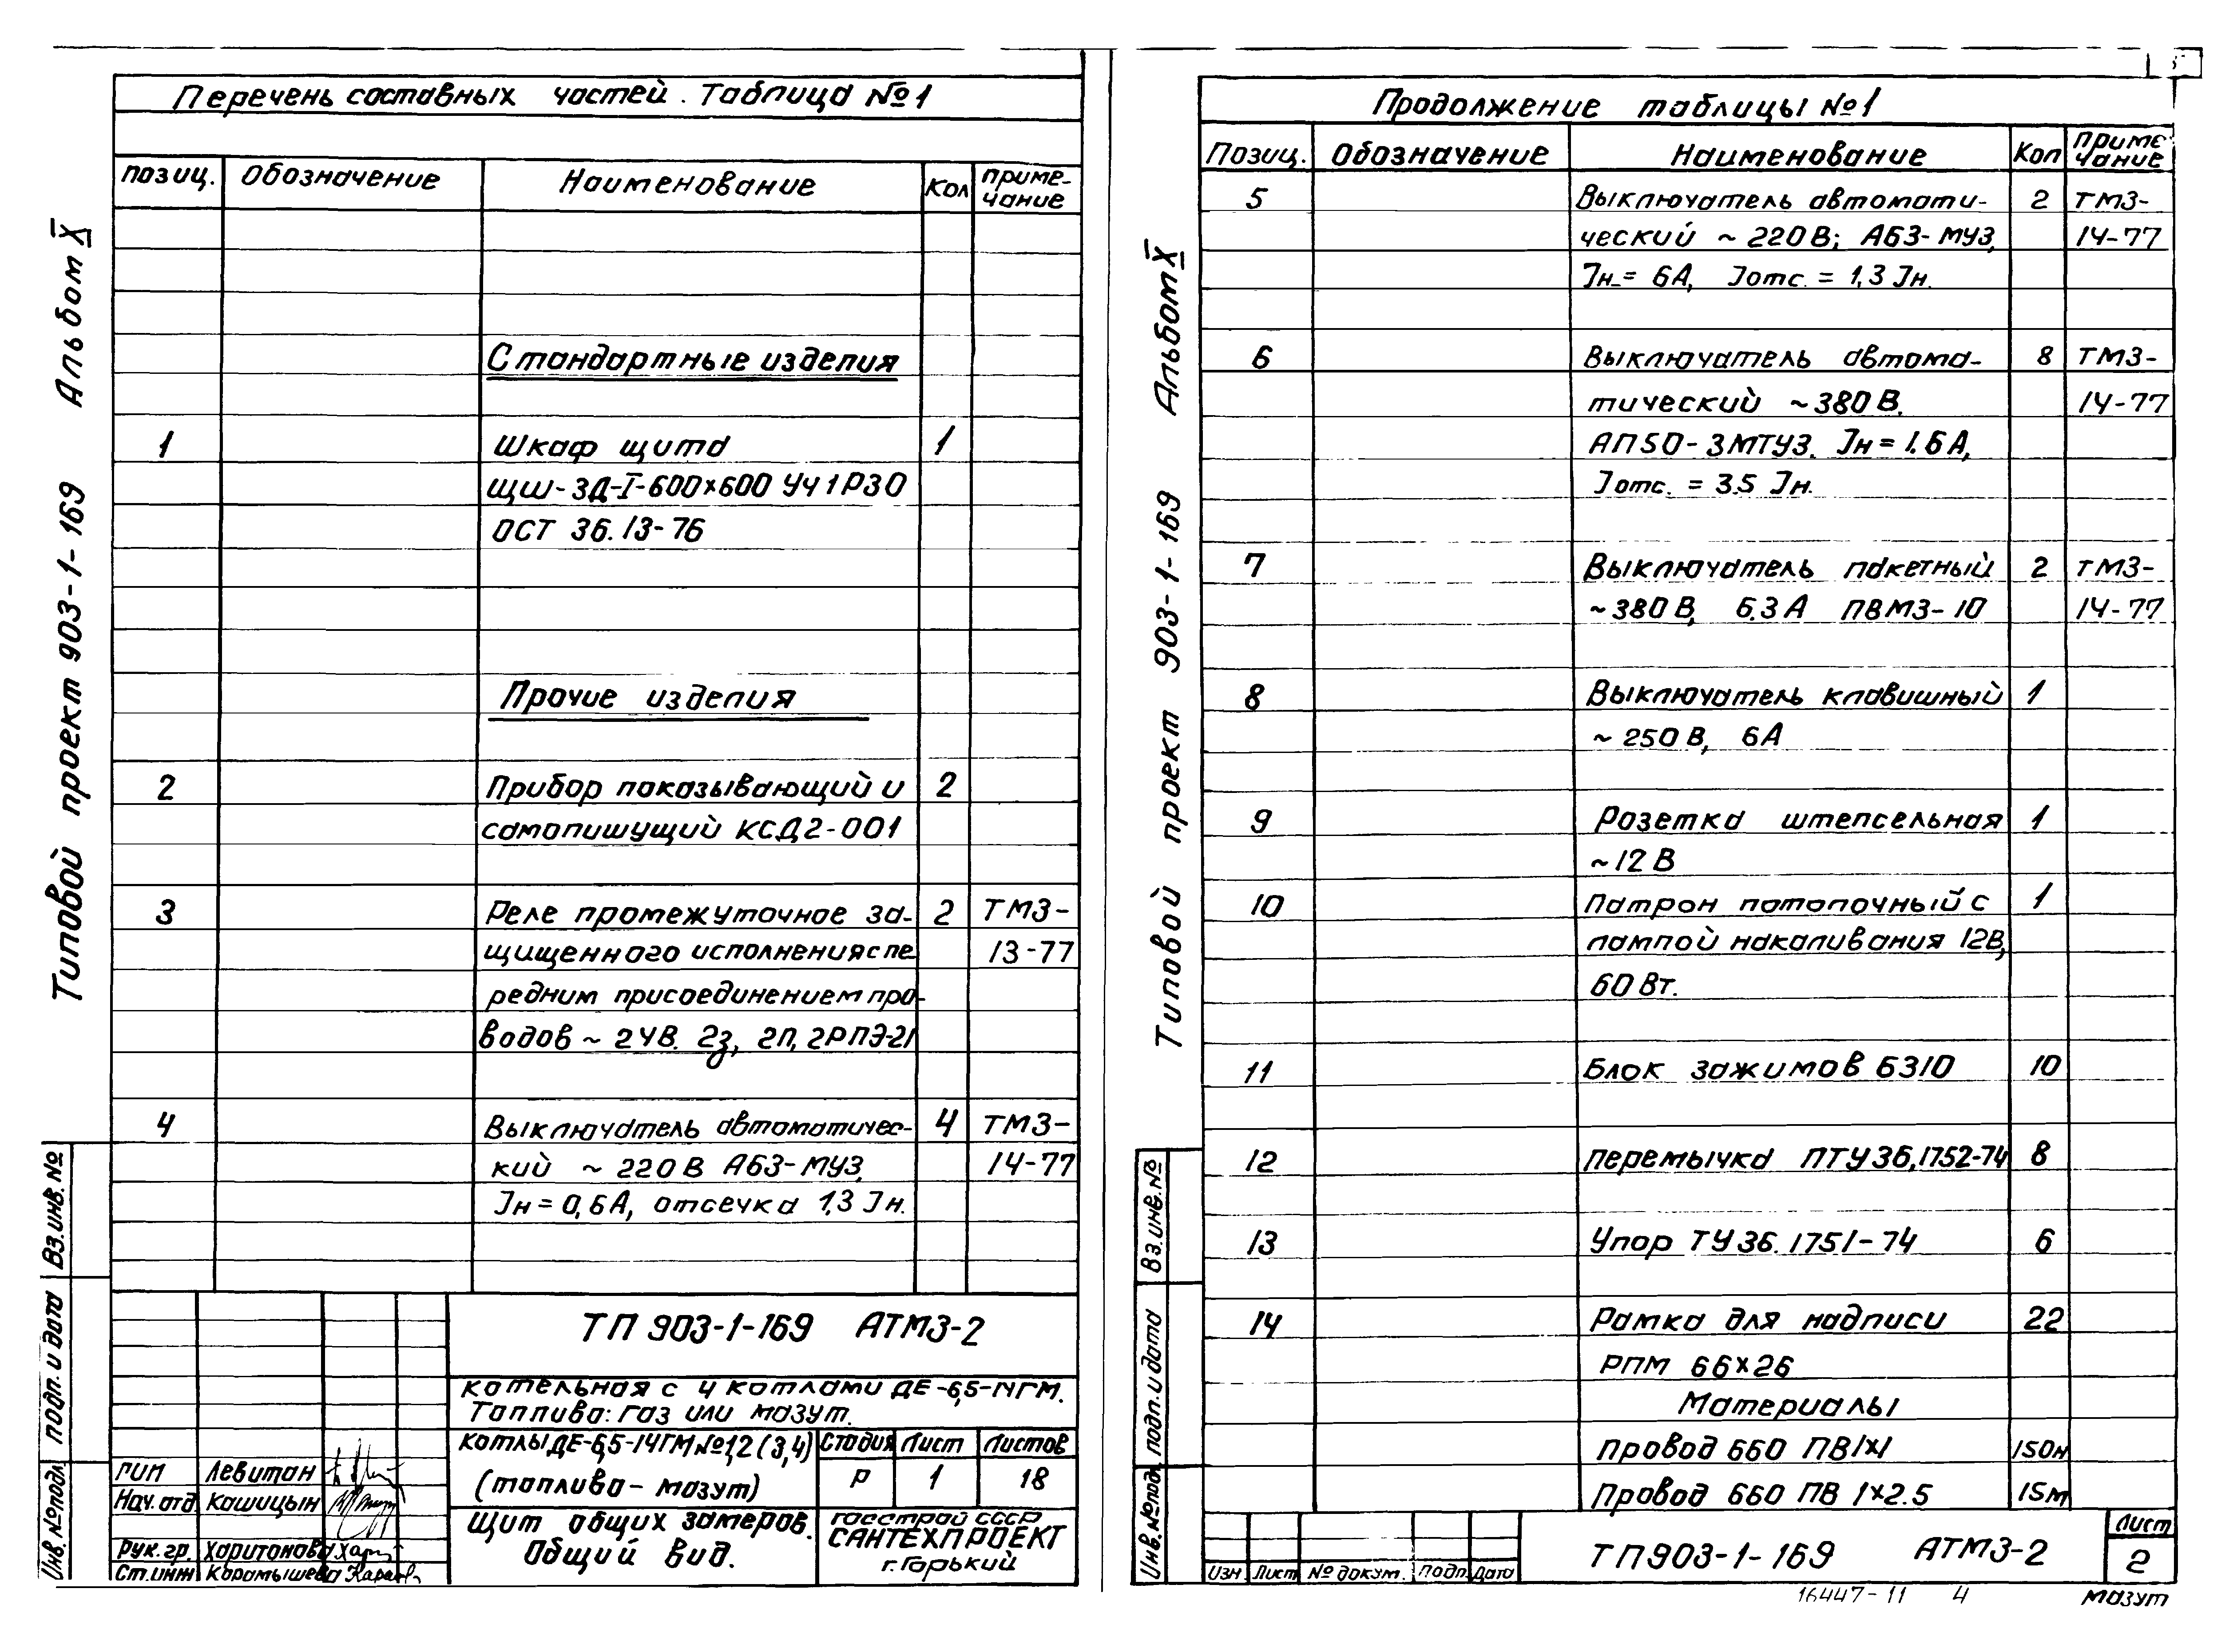 Перечень составных частей. Таблица №1
позиц. Обозначение Наименование Кол Приме-
чание
Стандартные изделия
1 Шкаф щита 1
ЩШ-ЗД-I-600×600 УЧ1Р30
ОСТ 36.13-76
Прочие изделия
2 Прибор показывающий и 2
самопишущий КСД2-001
3 Реле промежуточное за- 2 ТМЗ-
щищенного исполнения с пе 13-77
редним присоединением про-
водов ~ 24В. 2з, 2П, 2РПЭ-21
4 Выключатель автоматичес- 4 ТМЗ-
кий ~ 220В А63-МУЗ, 14-77
Jн = 0,6А, отсечка 1,3 Jн.
ТП 903-1-169 АТМЗ-2
котельная с 4 котлами ДЕ-6,5-14ГМ.
Топливо: газ или мазут.
Котлы ДЕ-6,5-14ГМ №1,2 (3,4)
(топливо - мазут)
Стадия Лист Листов
Р 1 18
Щит общих замеров.
Общий вид.
Госстрой СССР
САНТЕХПРОЕКТ
г. Горький
ГИП Левитан
Нач. отд. Кашицын
Рук. гр. Харитонова
Ст. инж Карамышева
Альбом X
Типовой проект 903-1-169
Вз. инв. №
подп. и дата
Инв. № подл.
Продолжение таблицы №1
Позиц. Обозначение Наименование Кол Приме-
чание
5 Выключатель автомати- 2 ТМЗ-
ческий ~ 220В; А63-МУЗ, 14-77
Jн = 6А, Jотс. = 1,3 Jн.
6 Выключатель автома- 8 ТМЗ-
тический ~380В. 14-77
АП50-3МТУЗ. Jн = 1.6А,
Jотс. = 3.5 Jн.
7 Выключатель пакетный 2 ТМЗ-
~380В, 6.3А ПВМЗ-10 14-77
8 Выключатель клавишный 1
~ 250В, 6А
9 Розетка штепсельная 1
~12В
10 Патрон потолочный с 1
лампой накаливания 12В,
60Вт.
11 Блок зажимов БЗ10 10
12 перемычка ПТУ36.1752-74 8
13 Упор ТУ36.1751-74 6
14 Рамка для надписи 22
РПМ 66×26
Материалы
Провод 660 ПВ1×1 150м
Провод 660 ПВ 1×2.5 15м
Изн Лист № докум. Подп. Дата
ТП903-1-169 АТМЗ-2
Лист
2
Альбом X
Типовой проект 903-1-169
Вз. инв. №
подп. и дата
Инв. № подл.
16447-11 4 мазут